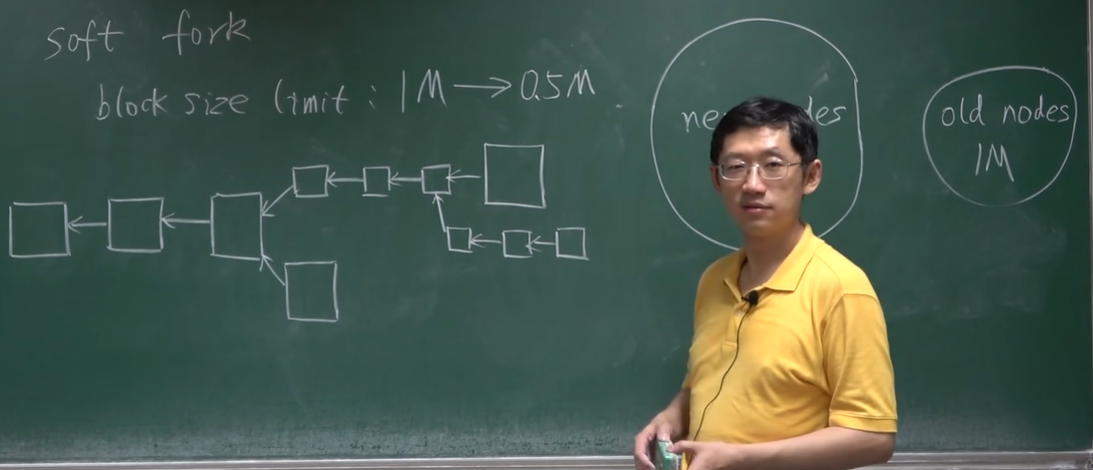 soft fork
block size limit : 1M → 0.5M
old nodes
1M